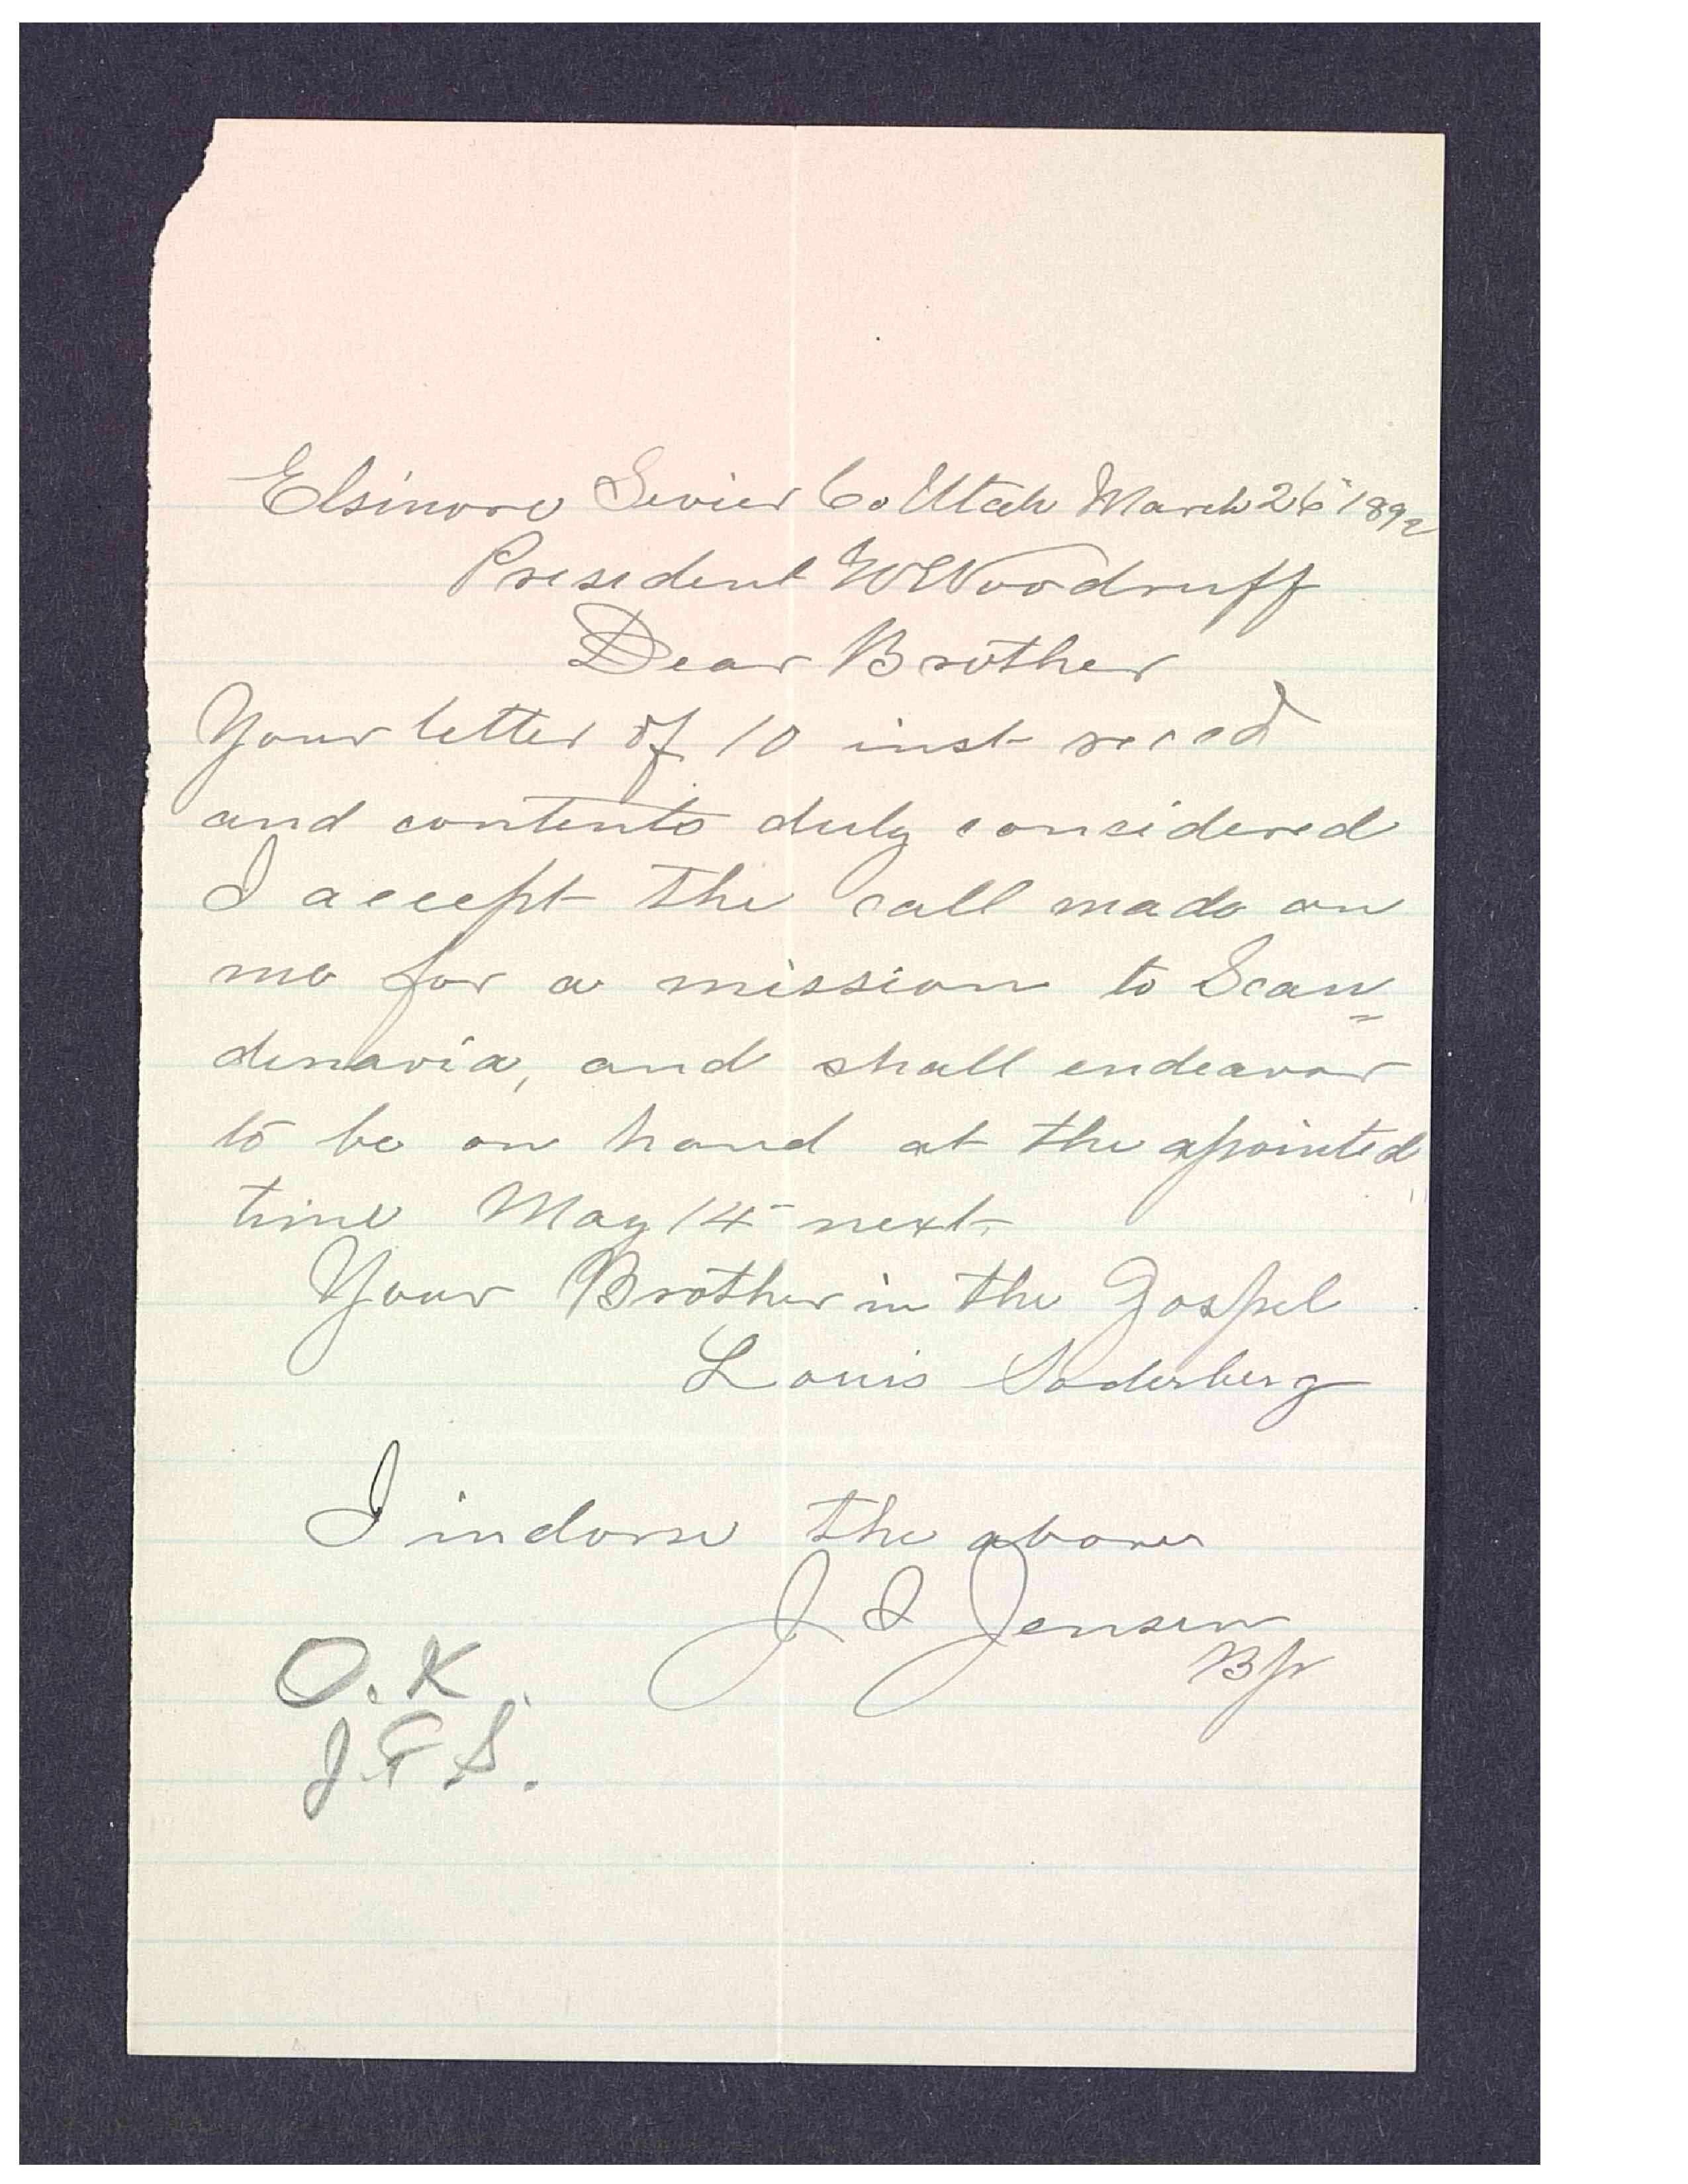 Elsinore Sevier Co Utah March 26 1892
President W Woodruff
Dear Brother
Your letter of 10 inst reced
and contents duly concidered
I accept the call made on
me for a mission to Scan=
dinavia, and shall endeavor
to be on hand at the apointed
time May 14 next
Your Brother in the Gospel
Louis Soderberg
I indorse the above
J I Jensen
Bp
O.K.
J.F.S.